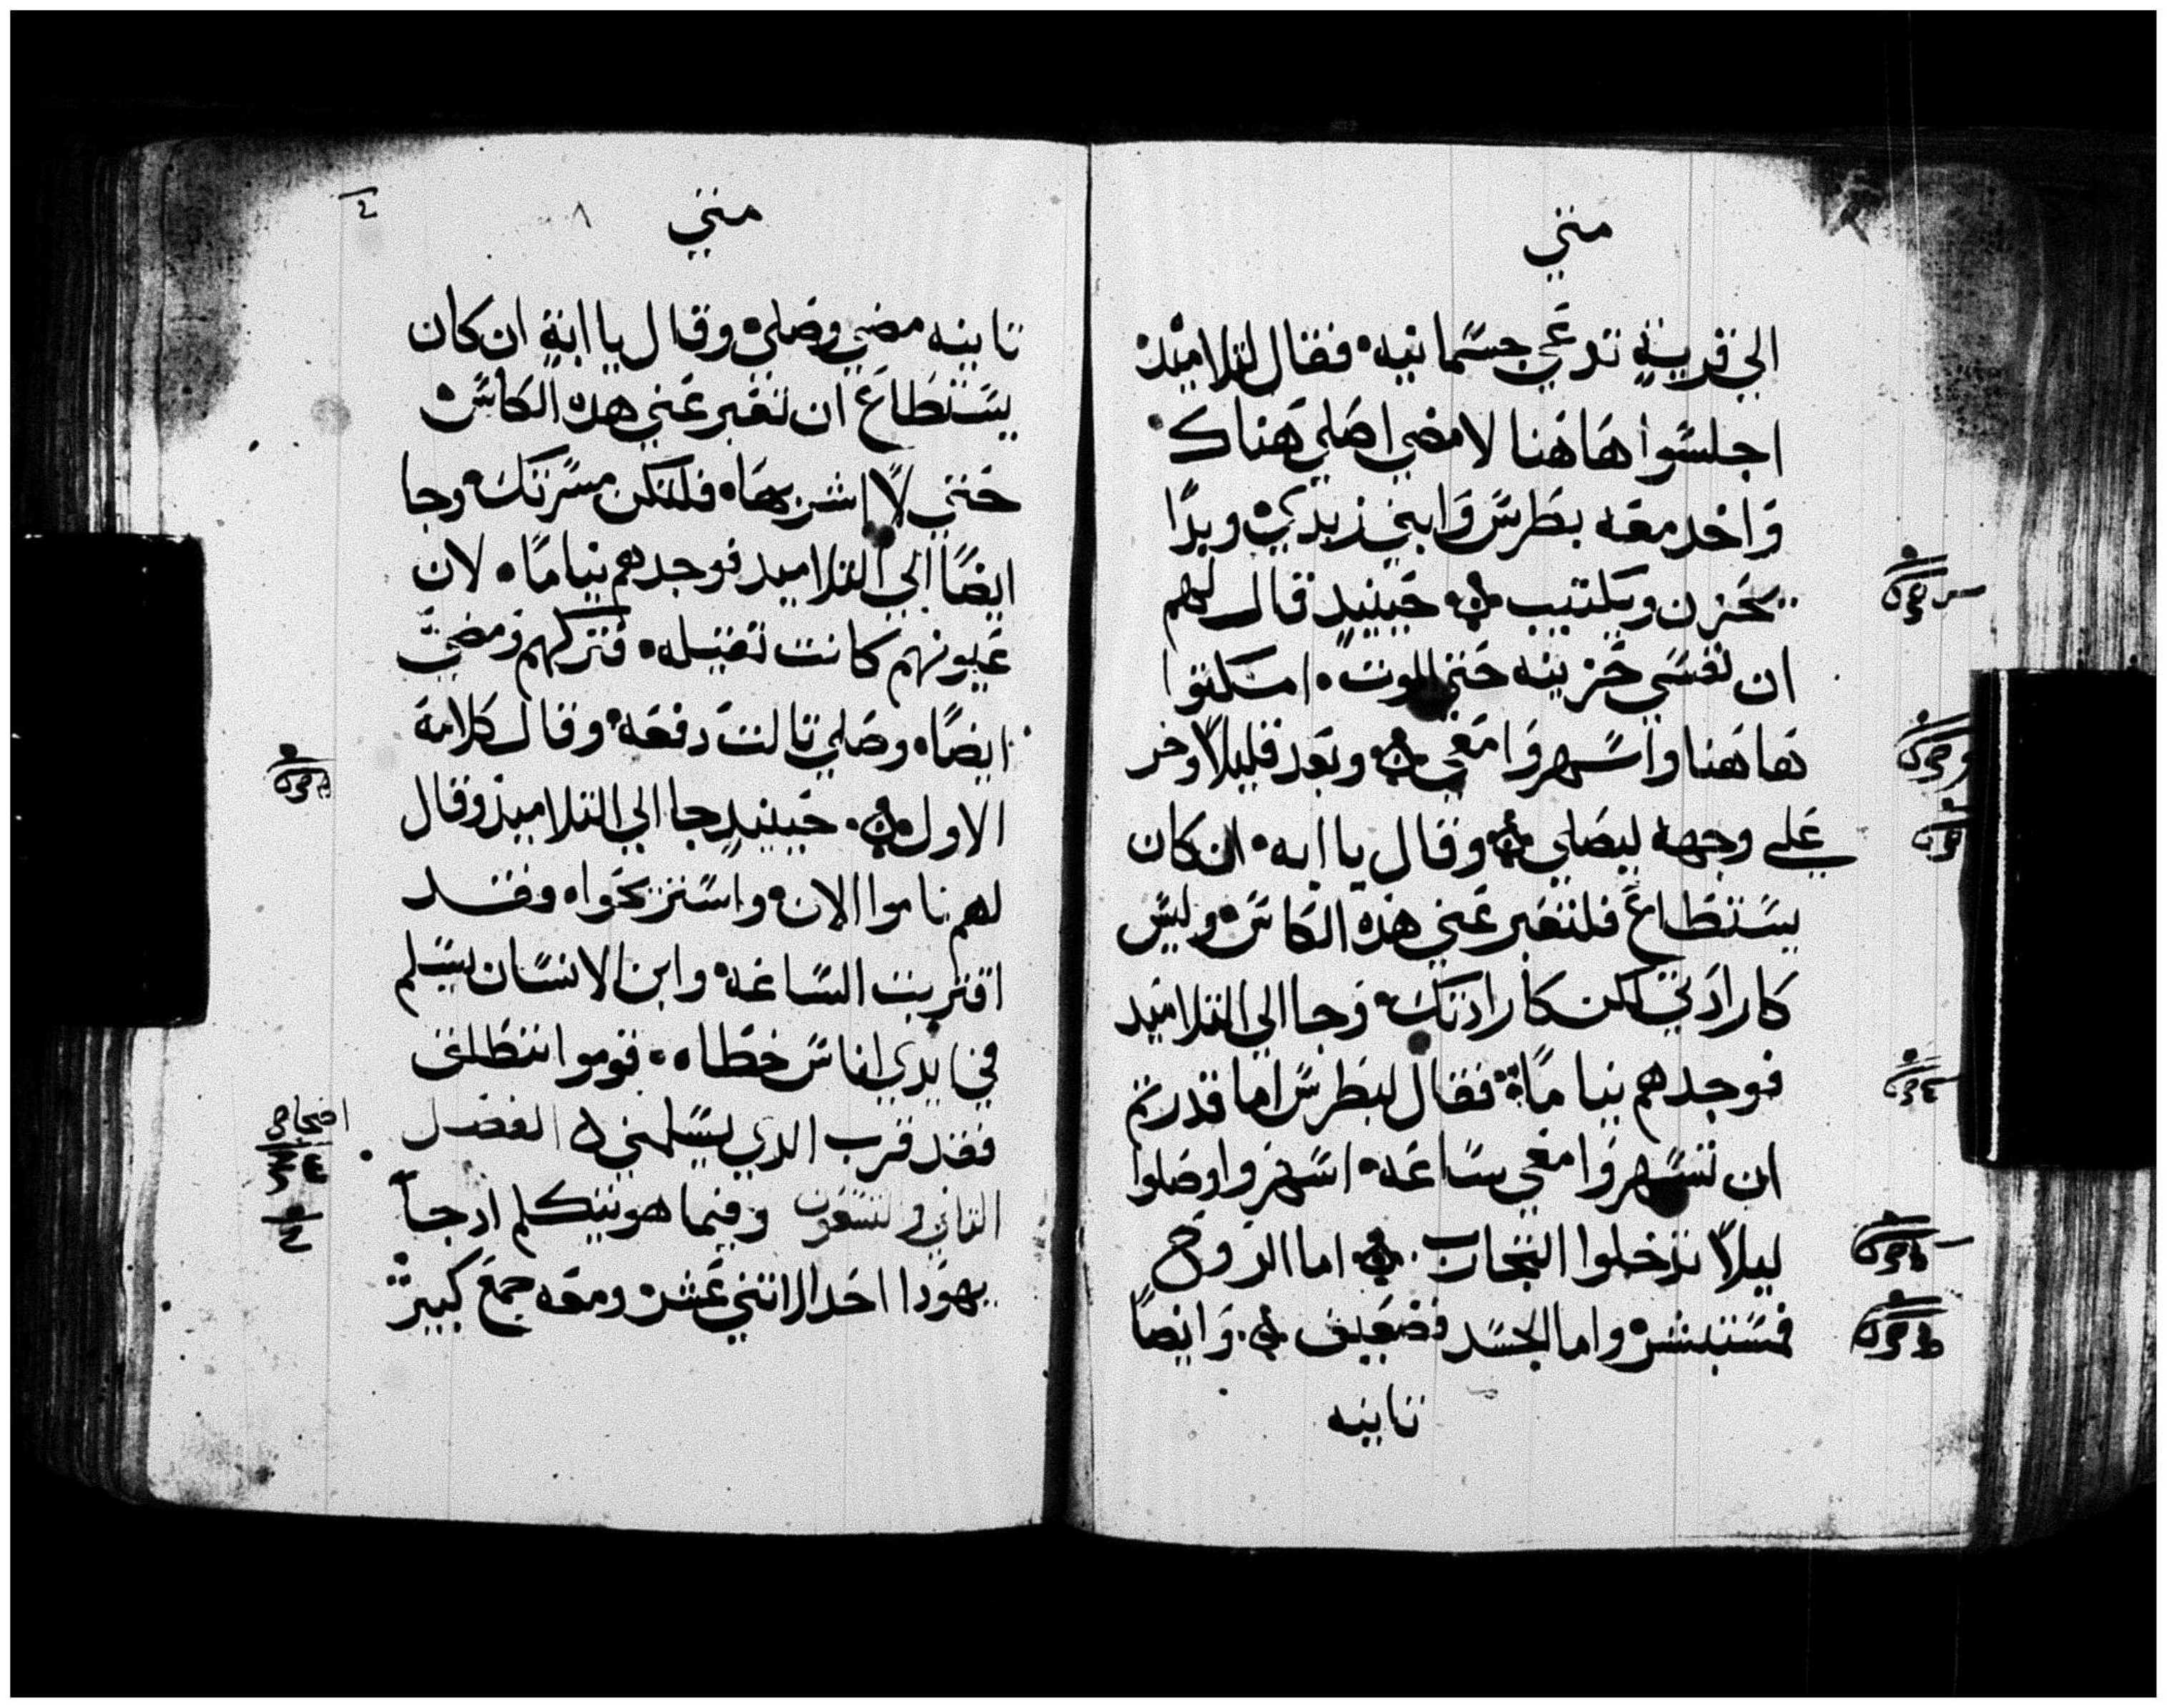 متي
الي قرية تدعي جسمانيه فقال لتلاميذه
اجلسوا هاهنا لامضي اصلي هناك
واخد معه بطرس وابني زبدي وبدا
يحزن ويكتيب حينيدٍ قال لهم
ان نفسي حزينه حتي الموت امكتوا
هاهنا واسهروا معي وبعد قليلاً وخر
علي وجهه ليصلي وقال يا ابه ان كان
يستطاع فلتعبر عني هذه الكاس وليس
كارادتي لكن كارادتك وجا الي التلاميد
فوجدهم نياماً فقال لبطرس اما قدرتم
ان تسهروا معي ساعه اسهروا وصلوا
ليلاً تدخلوا التجارب اما الروح
فمستبشره واما الجسد فضعيف وايضاً
تانيه
متي
تانيه مضي وصلي وقال يا ابة ان كان
يستطاع ان تعبر عني هده الكاس
حتي لا اشربها فلتكن مسرتك وجا
ايضاً الي التلاميد فوجدهم نياماً لان
عيونهم كانت تقيله فتركهم ومضي
ايضاً وصلي تالت دفعه وقال كلامه
الاول حينيدٍ جا الي التلاميذ وقال
لهم ناموا الان واستريحوا فقد
اقتربت الساعه وابن الانسان يسلم
في ايدي اناس خطاه قوموا ننطلق
فقد قرب الدي يسلمني الفصل
التاني والتسعون وفيما هو يتكلم ادجا
يهودا احد الاتني عشر ومعه جمع كبير
اصحاح